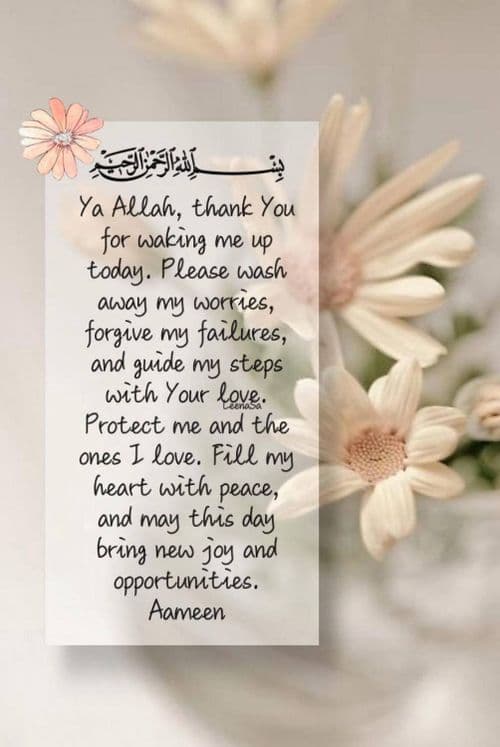 بسم الله الرحمن الرحيم
Ya Allah, thank You
for waking me up
today. Please wash
away my worries,
forgive my failures,
and guide my steps
with Your love.
LeenaSa
Protect me and the
ones I love. Fill my
heart with peace,
and may this day
bring new joy and
opportunities.
Aameen